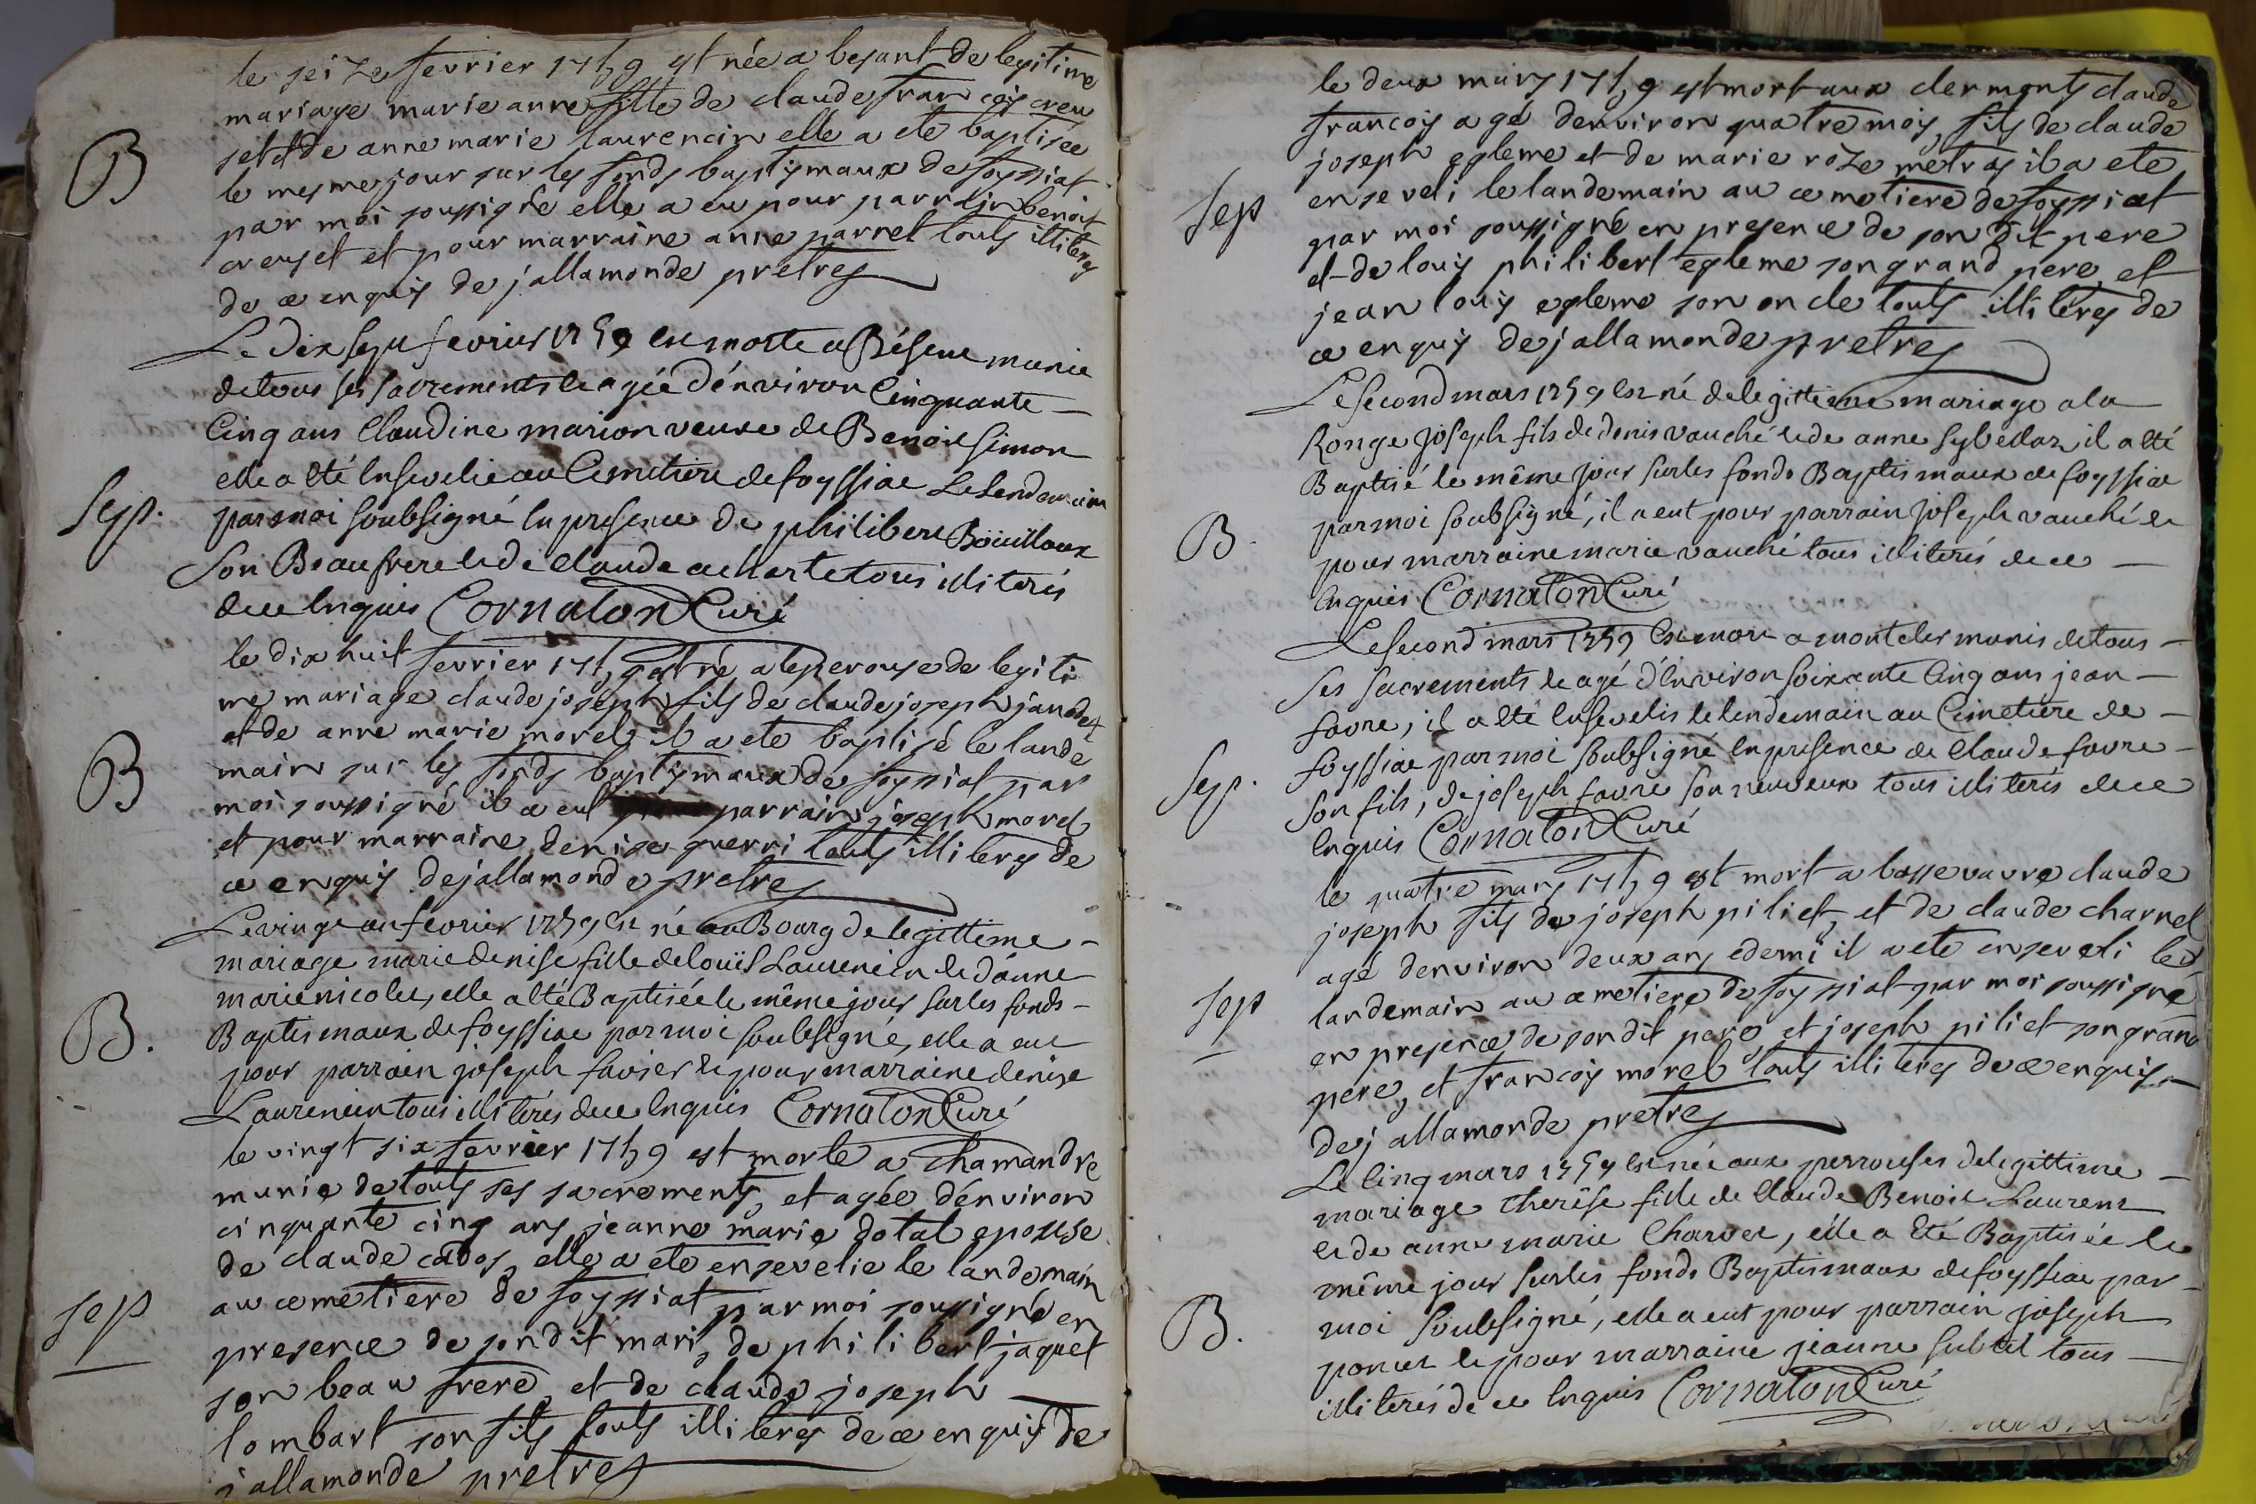 le seize fevrier 1759 est née a besant de legitime
mariage marie anne fille de claude francois creu
set et de anne marie laurencin elle a ete baptisée
B
le mesme jour sur les fonds baptismaux de foyssiat
par moi soussigné elle a eu pour parrain benoit
creuset et pour marraine anne parret touts illiterés
de ce enquis dejallamonde pretres
Le dix sept fevrier 1759 est morte a Béseneu munie
de tous ses sacrements et agée d'énviron Cinquante
Cinq ans Claudine marion veuve de Benoit Simon
elle a été Ensevelie au Cimetiere de foyssiat Le Lendemain
Sep.
par moi soubsigné En presence de philibert Boüilloux
Son Beau frere et de Claude acharte tous illiterés
de ce Enquis Cornaton Curé
le dix huit fevrier 1759 est né a leperouse de legiti
me mariage claude joseph fils de claude joseph jandet
et de anne marie morel il a ete baptisé le lande
B
main sur les fonds baptismaux de foyssiat par
moi soussigné il a eut parrain joseph morel
et pour marraine denise guerri touts illiterés de
ce enquis dejallamonde pretres
Le vingt un fevrier 1759 est né au Bourg de legittime
mariage marie denise fille de Louïs Laurencin et d'anne
marie nicolet, elle a été Baptisée le même jour sur les fonds
B.
Baptismaux de foyssiat par moi soubsigné, elle a eut
pour parrain joseph favier et pour marraine denise
Laurencin tous illiterés de ce Enquis Cornaton Curé
le vingt six fevrier 1759 est morte a chamandre
munie de touts ses sacrements, et agée d'énviron
cinquante cinq ans jeanne marie dotal epouse
de claude cados, elle a ete ensevelie le landemain
Sep
au cemetiere de foyssiat par moi soussigné en
presence de son dit mari, de philibert jaquet
son beau frere, et de claude joseph
lombart son fils touts illiterés de ce enquis de
jallamonde pretres
le deux mars 1759 est mort aux clermonts claude
francois agé denviron quatre mois, fils de claude
joseph egleme et de marie roze metras il a ete
Sep
enseveli le landemain au cemetiere de foyssiat
par moi soussigné en presence de son dit pere
et de louis philibert egleme son grand pere et
jean louis egleme son oncle touts illiterés de
ce enquis dejallamonde pretres
Le second mars 1759 est né de legittime mariage a la
Ronge joseph fils de denis vauché et de anne sybellas, il a été
Baptisé le même jour sur les fonds Baptismaux de foyssiat
B.
par moi soubsigné, il a eut pour parrain joseph vauché et
pour marraine marie vauché tous illiterés de ce
Enquis Cornaton Curé
Le second mars 1759 est mort a montcler munis de tous
Ses sacrements et agé d'Environ soixante Cinq ans jean
favre, il a été Ensevelis le lendemain au Cimetiere de
Sep.
foyssiat par moi soubsigné En presence de Claude favre
Son fils, de joseph favre son neuveux tous illiterés de ce
Enquis Cornaton Curé
le quatre mars 1759 est mort a bassevavre claude
joseph fils de joseph piliet, et de claude charnel
agé denviron deux ans edemi il a ete enseveli le
Sep
landemain au cemetiere de foyssiat par moi soussigné
en presence de son dit pere, et joseph piliet son grand
pere, et francois morel touts illiterés de ce enquis
dejallamonde pretres
Le Cinq mars 1759 est née aux perrouses de legittime
mariage therëse fille de Claude Benoit Laurent
et de anne marie Charvet, elle a été Baptisée le
même jour sur les fonds Baptismaux de foyssiat par
B.
moi soubsigné, elle a eut pour parrain joseph
poncet et pour marraine jeanne subtil tous
illiterés de ce Enquis Cornaton Curé